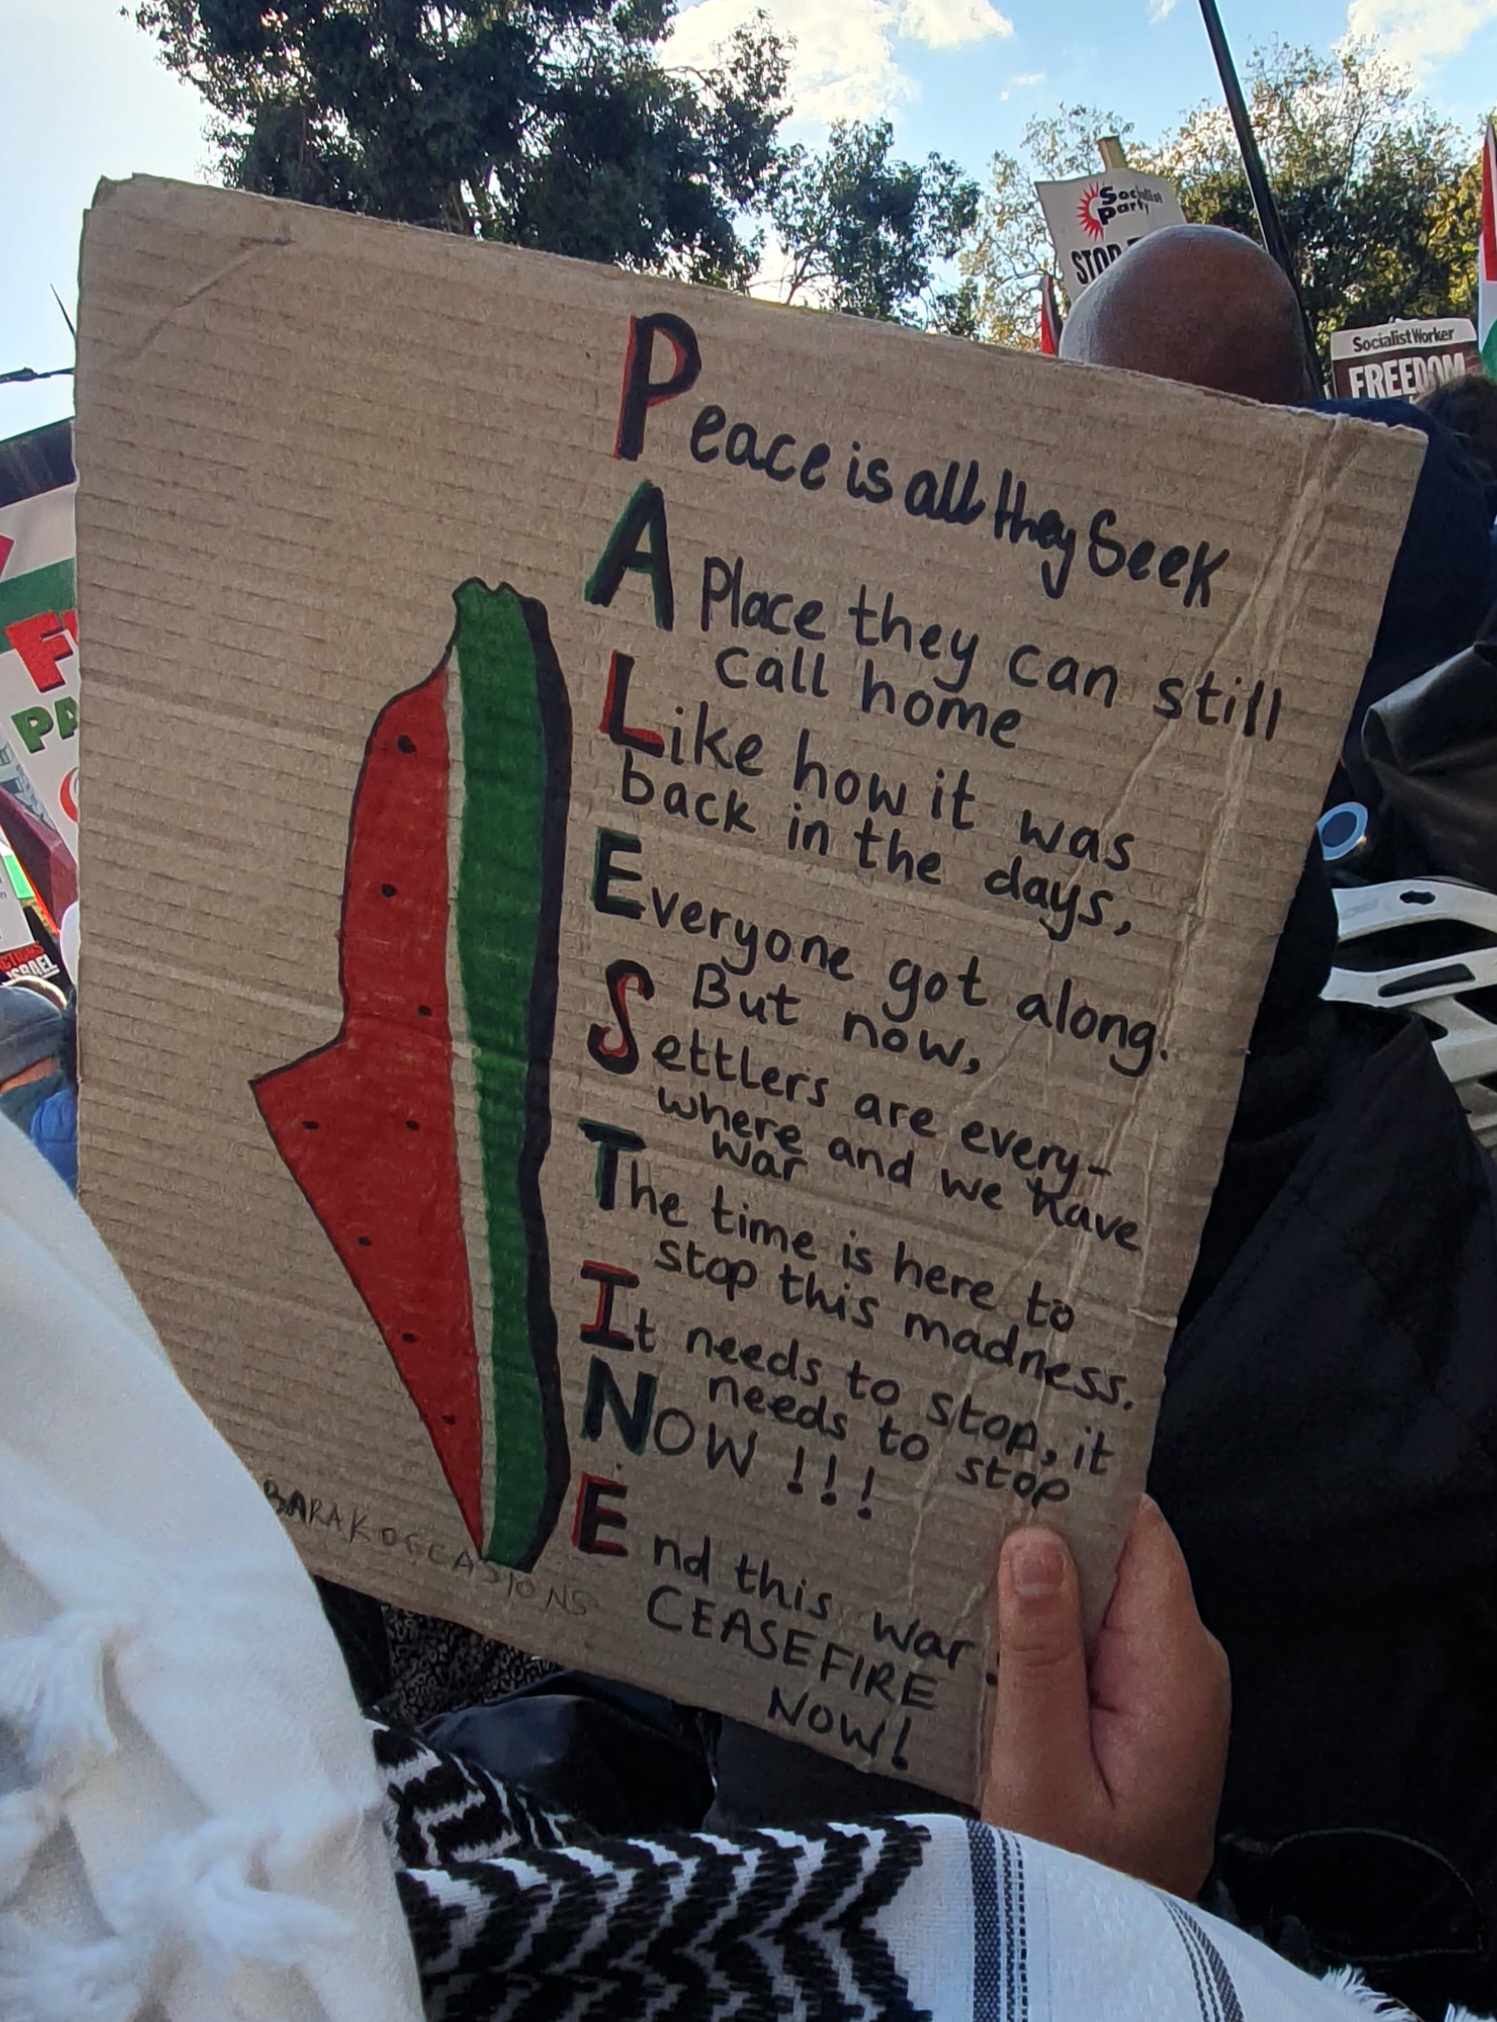 Socialist
Party
STOP
Socialist Worker
FREEDOM
Peace is all they Seek
A Place they can still
call home
Like how it was
back in the days,
Everyone got along.
But now,
Settlers are every-
where and we have
war
The time is here to
stop this madness.
It needs to stop, it
needs to stop
NOW !!!
End this war
CEASEFIRE
NOW!
BARAKOCCASIONS